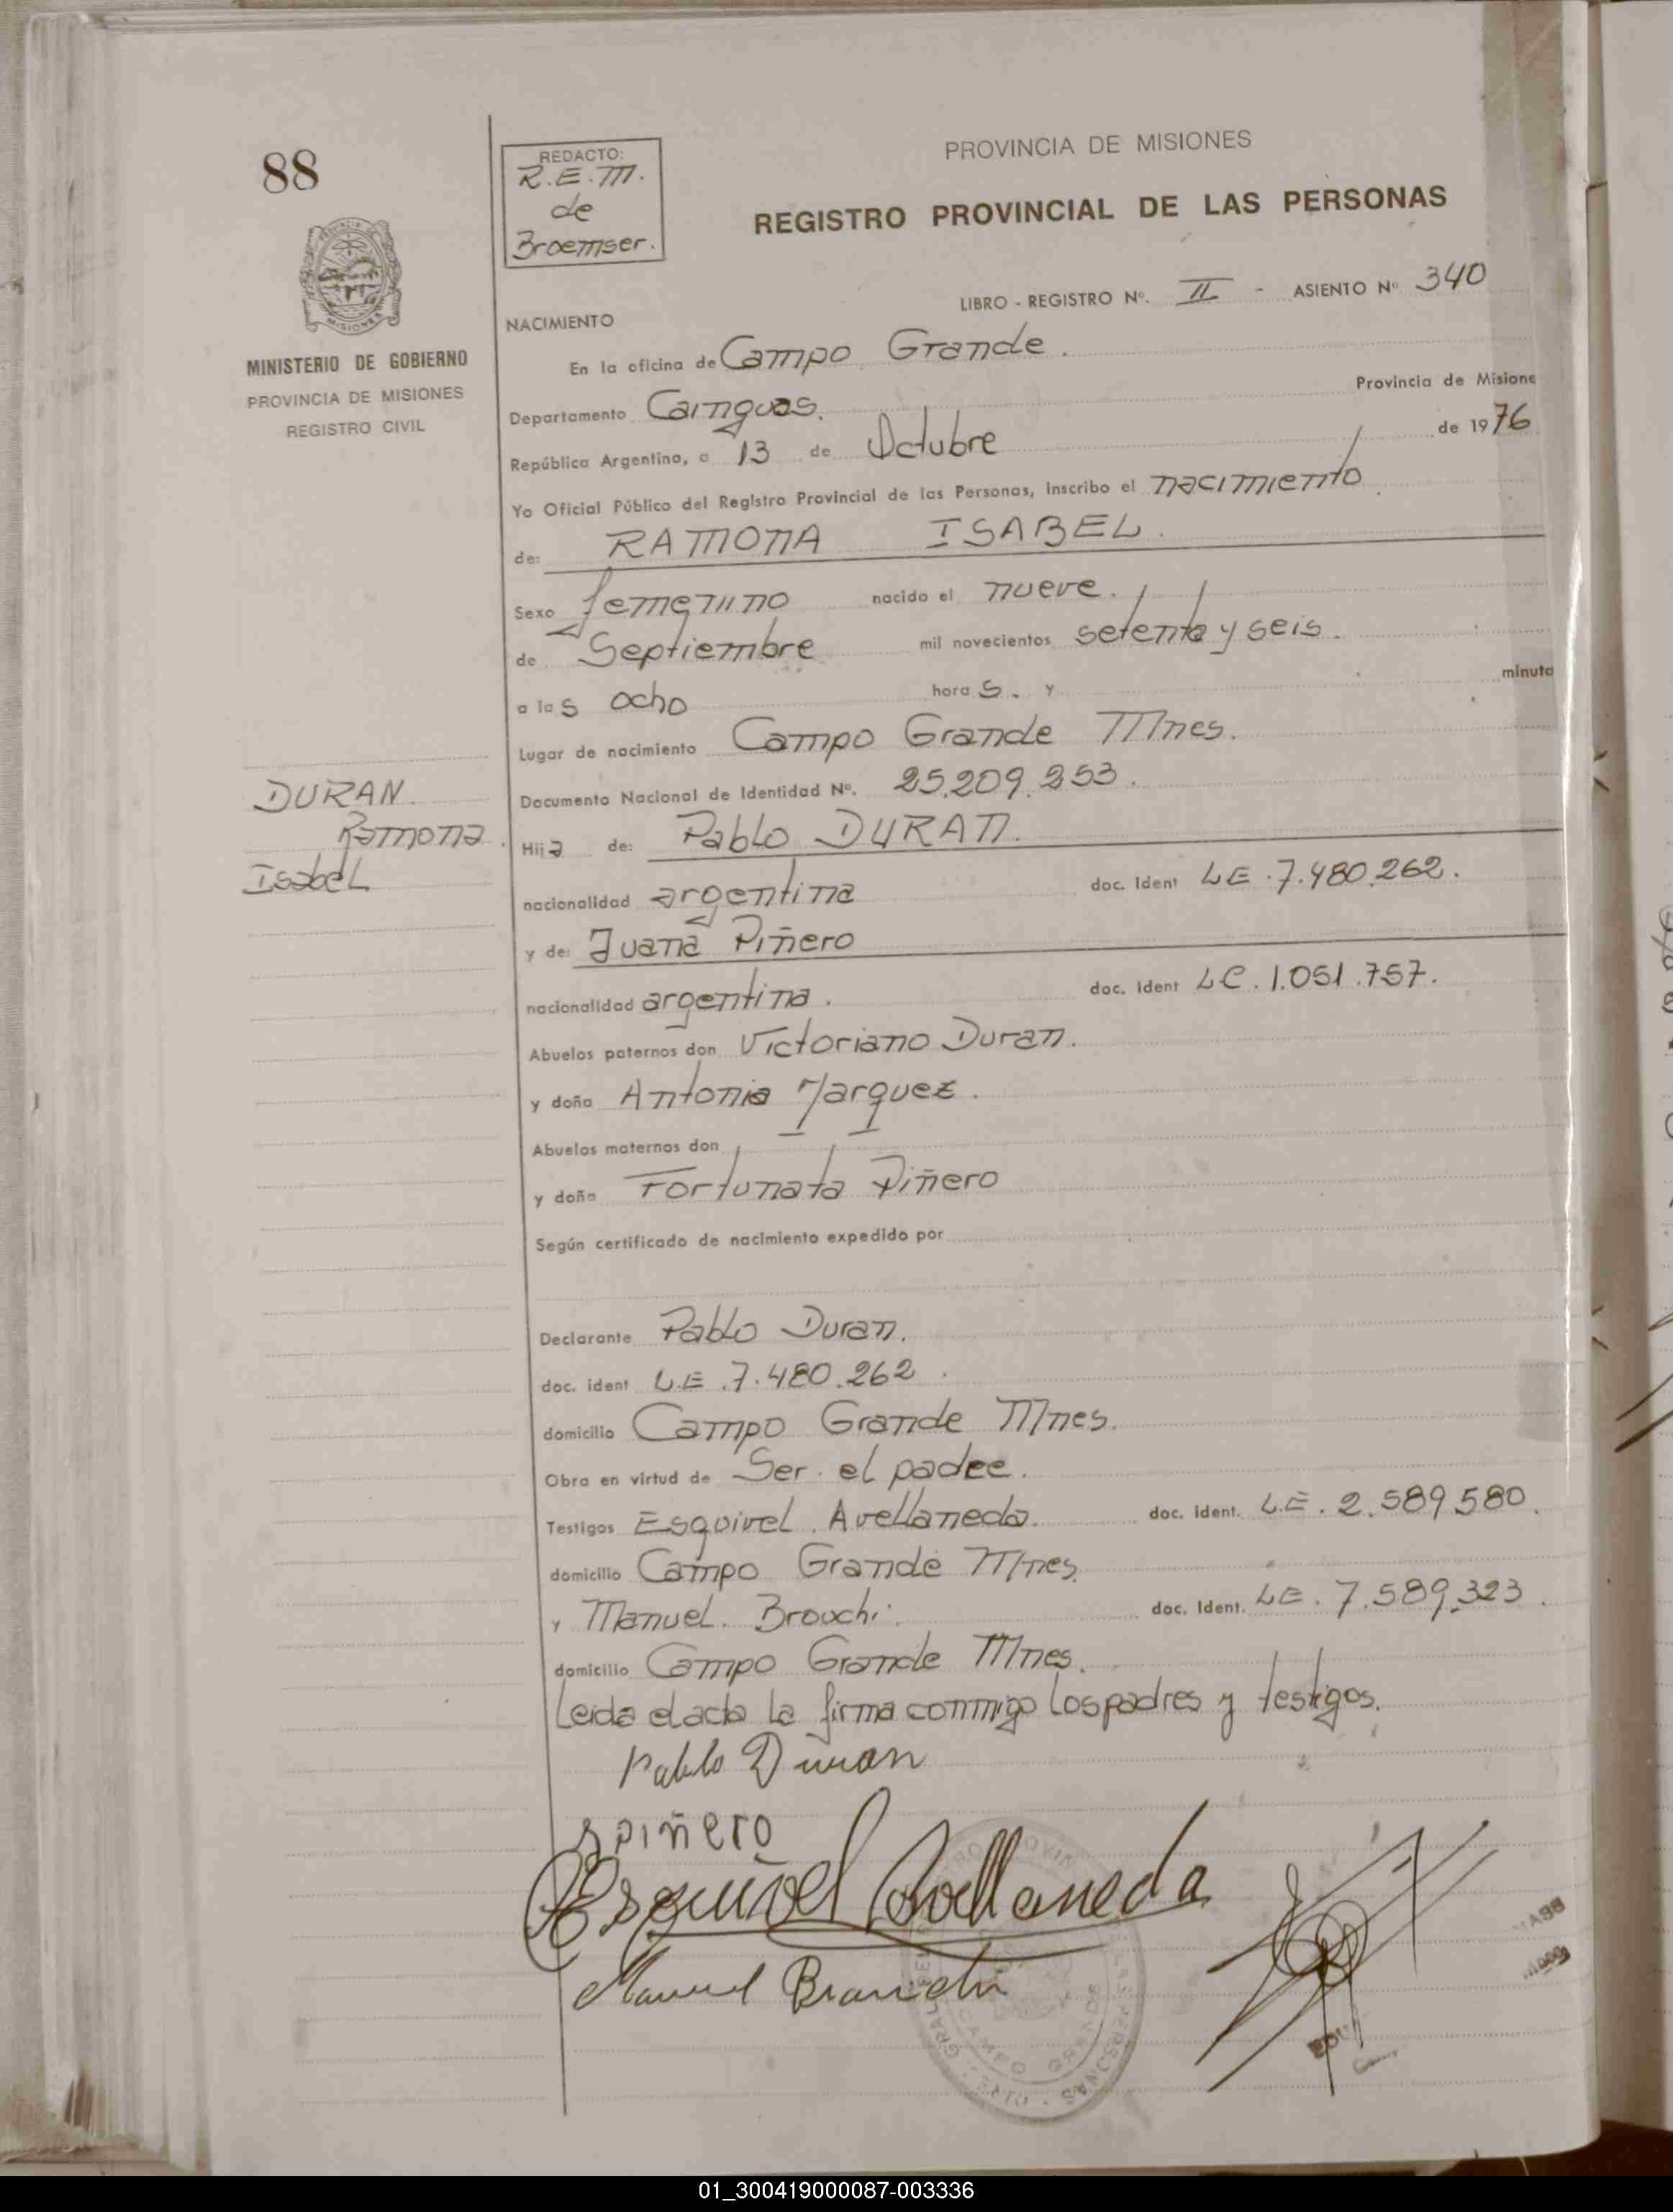 88
REDACTO:
R.E.M.
de
Broemser.
PROVINCIA DE MISIONES
REGISTRO PROVINCIAL DE LAS PERSONAS
MINISTERIO DE GOBIERNO
PROVINCIA DE MISIONES
REGISTRO CIVIL
LIBRO - REGISTRO Nº. II - ASIENTO Nº 340
NACIMIENTO
En la oficina de Campo Grande.
Provincia de Misione
Departamento Cainguas.
República Argentina, a 13 de Octubre de 1976
Yo Oficial Público del Registro Provincial de las Personas, Inscribo el nacimiento
de: RAMONA ISABEL.
Sexo femenino nacido el nueve.
de Septiembre mil novecientos setenta y seis.
a las ocho horas. y minuto
Lugar de nacimiento Campo Grande Mnes.
Documento Nacional de Identidad Nº. 25.209.253.
DURAN
Ramona
Isabel
Hija de: Pablo DURAN.
nacionalidad argentina doc. Ident LE.7.480.262.
y de: Juana Piñero
nacionalidad argentina. doc. Ident LC.1.051.757.
Abuelos paternos don Victoriano Duran.
y doña Antonia Marquez.
Abuelos maternos don
y doña Fortunata Piñero
Según certificado de nacimiento expedido por
Declarante Pablo Duran.
doc. ident L.E.7.480.262.
domicilio Campo Grande Mnes.
Obra en virtud de Ser el padre.
Testigos Esquivel Avellaneda. doc. ident. L.E.2.589.580.
domicilio Campo Grande Mnes.
y Manuel Brouchi. doc. Ident. LE.7.589.323.
domicilio Campo Grande Mnes.
Leida el acta la firma conmigo los padres y testigos.
Pablo Duran
piñero
Esquivel Avellaneda
Manuel
CAMPO GRANDE
01_300419000087-003336